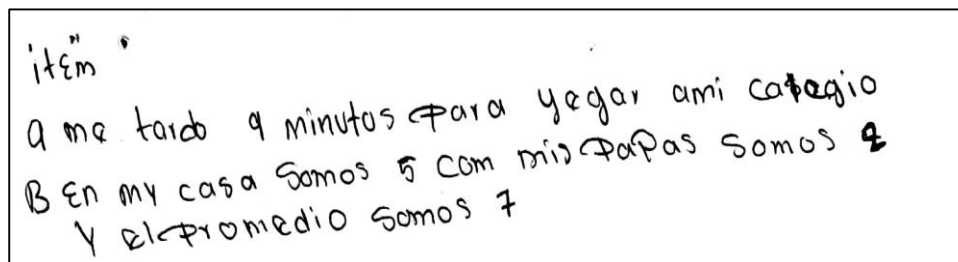 itEm
a me tardo 9 minutos para yegar ami categio
B En my casa somos 5 com mis PaPas somos 2
Y el promedio somos 7